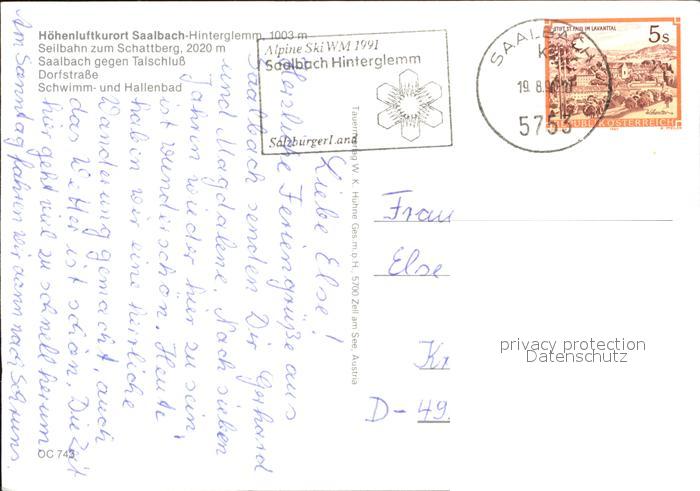 Höhenluftkurort Saalbach-Hinterglemm, 1003 m
Seilbahn zum Schattberg, 2020 m
Saalbach gegen Talschluß
Dorfstraße
Schwimm- und Hallenbad
Alpine Ski WM 1991
Saalbach Hinterglemm
SalzburgerLand
SAALBACH
19.8.
5753
STIFT ST. PAUL IM LAVANTTAL
5 S
REPUBLIK ÖSTERREICH
Tauernverlag W. K. Hühne Ges.m.b.H., 5700 Zell am See, Austria
Liebe Else!
Herzliche Feriengrüße aus
Saalbach senden Dir Gerhard
und Magdalene. Nach sieben
Jahren wieder hier zu sein
ist wunderschön. Heute
haben wir eine herrliche
Wanderung gemacht, auch
das Wetter ist schön. Die Zeit
hier geht viel zu schnell herum.
Am Samstag fahren wir dann nach Schruns.
Frau
Else
Kr
D-49
privacy protection
Datenschutz
OC 743